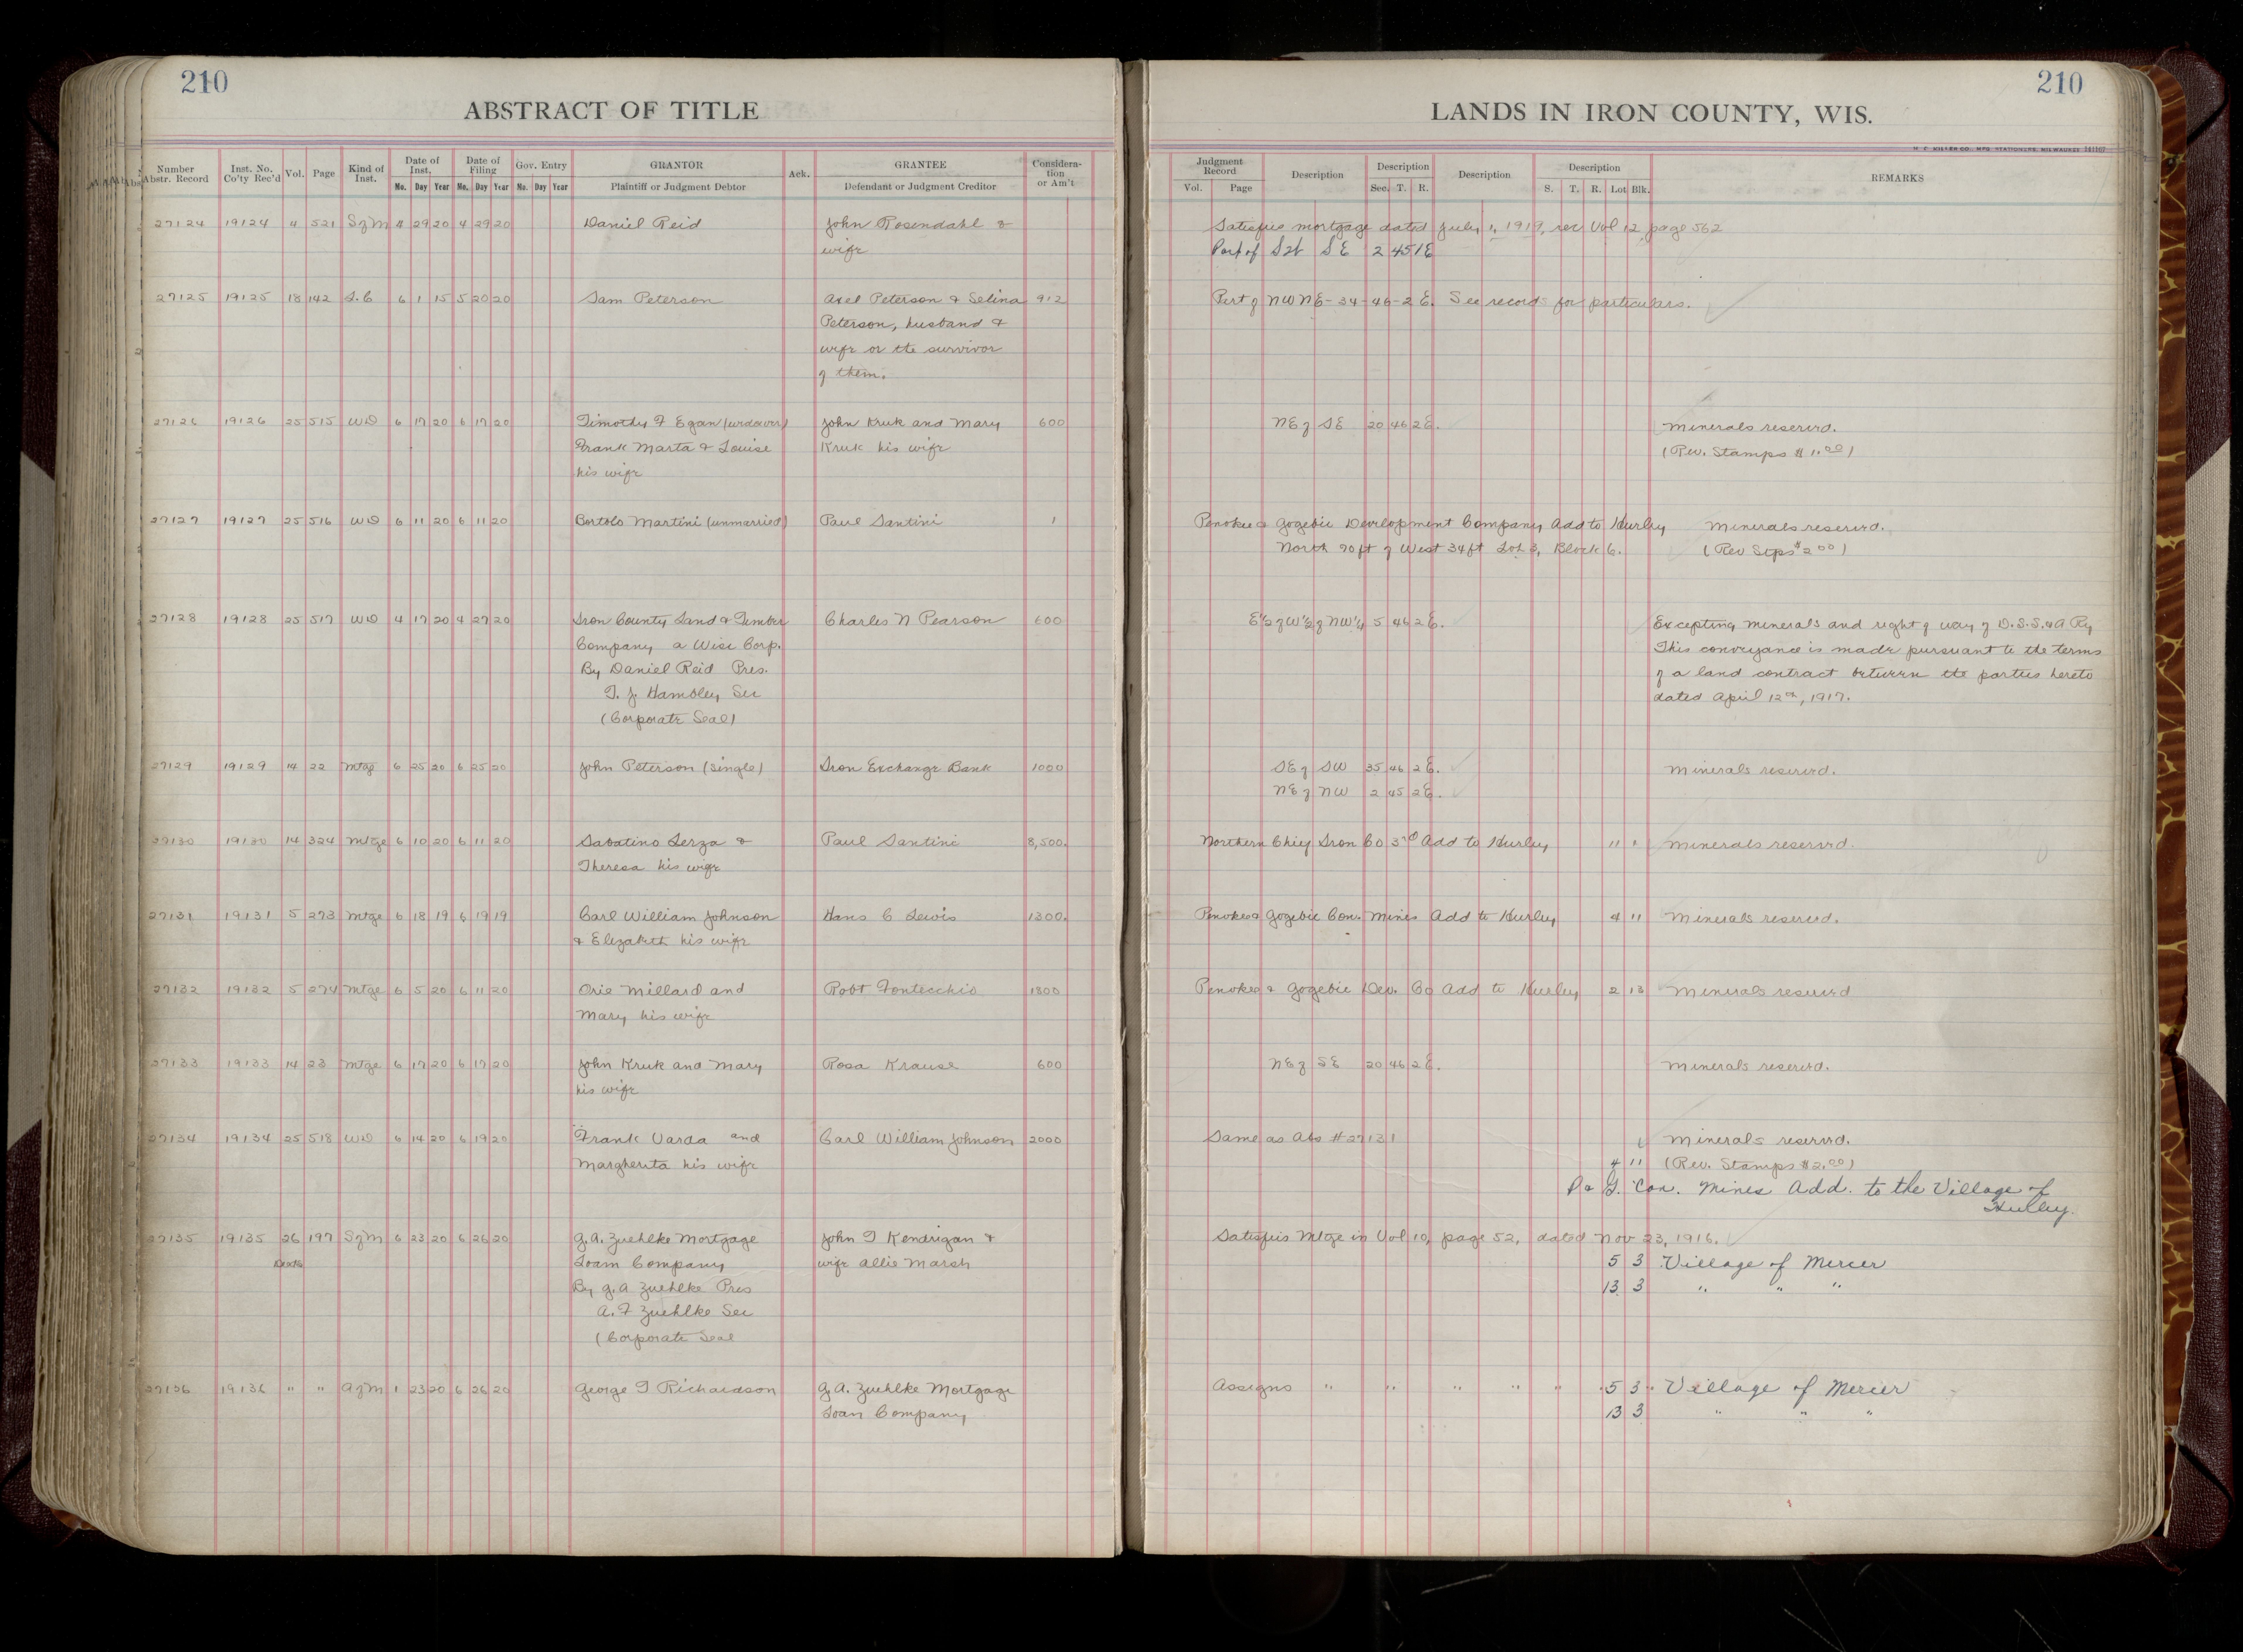 210
ABSTRACT OF TITLE
Number Abstr. Record Inst. No. Co'ty Rec'd Vol. Page Kind of Inst. Date of Inst. Mo. Day Year Date of Filing Mo. Day Year Gov. Entry Mo. Day Year GRANTOR Plaintiff or Judgment Debtor Ack. GRANTEE Defendant or Judgment Creditor Considera-tion or Am't
210
LANDS IN IRON COUNTY, WIS.
H. F. MILLER CO., MFG. STATIONERS, MILWAUKEE
Judgment Record Vol. Page Description Description Sec. T. R. Description Description S. T. R. Lot Blk. REMARKS
27124 19124 4 521 S of M 4 29 20 4 29 20 Daniel Reid John Rosendahl & Satisfies mortgage dated July 1, 1919, rec Vol 12, page 562
wife Part of SW SE 2 45 1E
27125 19125 18 142 L.C 6 1 15 5 20 20 Sam Peterson Axel Peterson & Selina 912 Part of NW NE - 34 - 46 - 2 E. See records for particulars.
Peterson, husband &
wife or the survivor
of them.
27126 19126 25 515 WD 6 17 20 6 17 20 Timothy F Egan (widower) John Kruk and Mary 600 NE of SE 20 46 2E. Minerals reserved.
Frank Marta & Louise Kruk his wife (Rev. Stamps $1.00)
his wife
27127 19127 25 516 WD 6 11 20 6 11 20 Bortolo Martini (unmarried) Paul Santini 1 Penokee & Gogebic Development Company Add to Hurley Minerals reserved.
North 70 ft of West 34 ft Lot 3, Block 6. (Rev Stps $2.00)
27128 19128 25 517 WD 4 17 20 4 27 20 Iron County Land & Timber Charles N Pearson 600 E½ of W½ of NW¼ 5 46 2E. Excepting minerals and right of way of D.S.S.&A Ry
Company a Wisc Corp. This conveyance is made pursuant to the terms
By Daniel Reid Pres. of a land contract between the parties hereto
T. J. Hambley Sec dated April 12th, 1917.
(Corporate Seal)
27129 19129 14 22 Mtge 6 25 20 6 25 20 John Peterson (single) Iron Exchange Bank 1000 SE of SW 35 46 2E. Minerals reserved.
NE of NW 2 45 2E.
27130 19130 14 324 Mtge 6 10 20 6 11 20 Sabatino Lerza & Paul Santini 8,500. Northern Chief Iron Co 3rd Add to Hurley 11 1 Minerals reserved.
Theresa his wife
27131 19131 5 273 Mtge 6 18 19 6 19 19 Carl William Johnson Hans C Lewis 1300. Penokee & Gogebic Con. Mines Add to Hurley 4 11 Minerals reserved.
& Elizabeth his wife
27132 19132 5 274 Mtge 6 5 20 6 11 20 Orie Millard and Robt Fontecchio 1800 Penokee & Gogebic Dev. Co Add to Hurley 2 13 Minerals reserved
Mary his wife
27133 19133 14 23 Mtge 6 17 20 6 17 20 John Kruk and Mary Rosa Krause 600 NE of SE 20 46 2E. Minerals reserved.
his wife
27134 19134 25 518 WD 6 14 20 6 19 20 Frank Varda and Carl William Johnson 2000 Same as Abs #27131 Minerals reserved.
Margherita his wife 4 11 (Rev. Stamps $2.00)
P & G. Con. Mines Add. to the Village of
Hurley.
27135 19135 26 197 S of M 6 23 20 6 26 20 G.A. Zuehlke Mortgage John T Kendrigan & Satisfies Mtge in Vol 10, page 52, dated Nov 23, 1916.
Deeds Loan Company wife Allie Marsh 5 3 Village of Mercer
By G.A Zuehlke Pres 13 3 " " "
A. F Zuehlke Sec
(Corporate Seal
27136 19136 " " A of M 1 23 20 6 26 20 George T Richardson G.A. Zuehlke Mortgage Assigns " " " " " 5 3 Village of Mercer
Loan Company 13 3 " " "